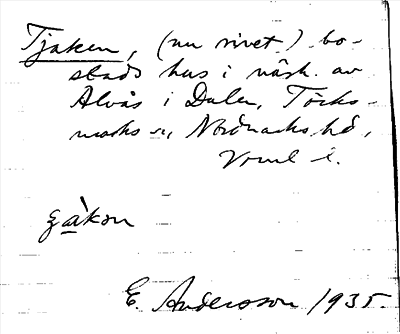 Tjaken, (nu rivet.) bo-
stads hus i närh. av
Alvås i Dalen, Töcks-
marks sn, Nordmarks hd,
Vrml l.
E. Andersson 1935.